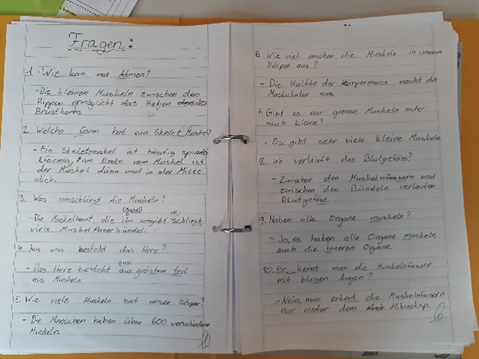 Fragen:
1. Wie kan man Atmen?
- Die kleinen Muskeln zwischen den
Rippen ermöglicht das Heben des
Brustkorbs.
2. Welche form hat ein Skelet Muskel
- Ein Skeletmuskel ist häufig
förmig, am Ende vom Muskel ist
der Muskel dünn und in der Mitte
dick.
3. Was umschliest die Muskeln?
- Die Muskelhaut, die ihn umgibt
viele Muskelfaserbündel.
4. Aus was besteht das Herz?
- Das Herz besteht aus grösten teil
ein Muskeln
5. Wie viele Muskeln hat unser Körper?
- Die Menschen haben über 600 verschiedene
Muskeln.
6. Wie viel machen die Muskeln in unseren
Körper aus?
- Die Hälfte der Körpermasse macht die
Muskulatur aus
7. Gibt es nur grosse Muskeln oder
auch kleine?
- Es gibt sehr viele kleine Muskeln.
8. Wo verläuft das Blutgefäse?
- Zwischen den Muskelnfasern und
zwischen den Bündeln verlaufen
Blutgefäse.
9. Haben alle Organe muskeln?
- Ja, es haben alle Organe muskeln
auch die inneren Organe.
10. kennt man die Muskelnfasern
mit blosen Augen?
- Nein, man erkent die Muskelnfasern
nur unter dem Mikroskop.